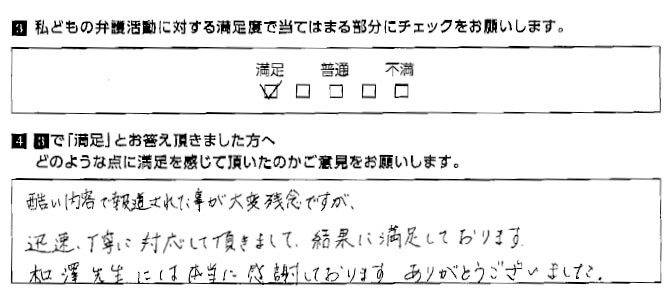 3 私どもの弁護活動に対する満足度で当てはまる部分にチェックをお願いします。
満足 普通 不満
4 3で「満足」とお答え頂きました方へ
どのような点に満足を感じて頂いたのかご意見をお願いします。
酷い内容で報道された事が大変残念ですが、
迅速、丁寧に対応して頂きまして、結果に満足しております
和澤先生には本当に感謝しております ありがとうございました。